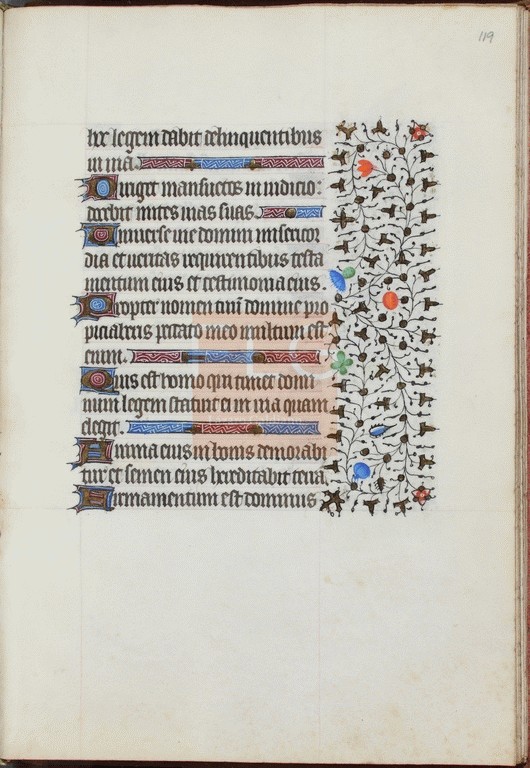 119
hec legem dabit delinquentibus
in via.
Diriget mansuetos in iudicio:
docebit mites vias suas.
Universe vie domini misericor
dia et veritas requirentibus testa
mentum eius et testimonia eius.
Propter nomen tuum domine pro
piciaberis peccato meo multum est
enim.
Quis est homo qui timet domi
num legem statuit ei in via quam
elegit.
Anima eius in bonis demorabi
tur et semen eius hereditabit terra.
Firmamentum est dominus